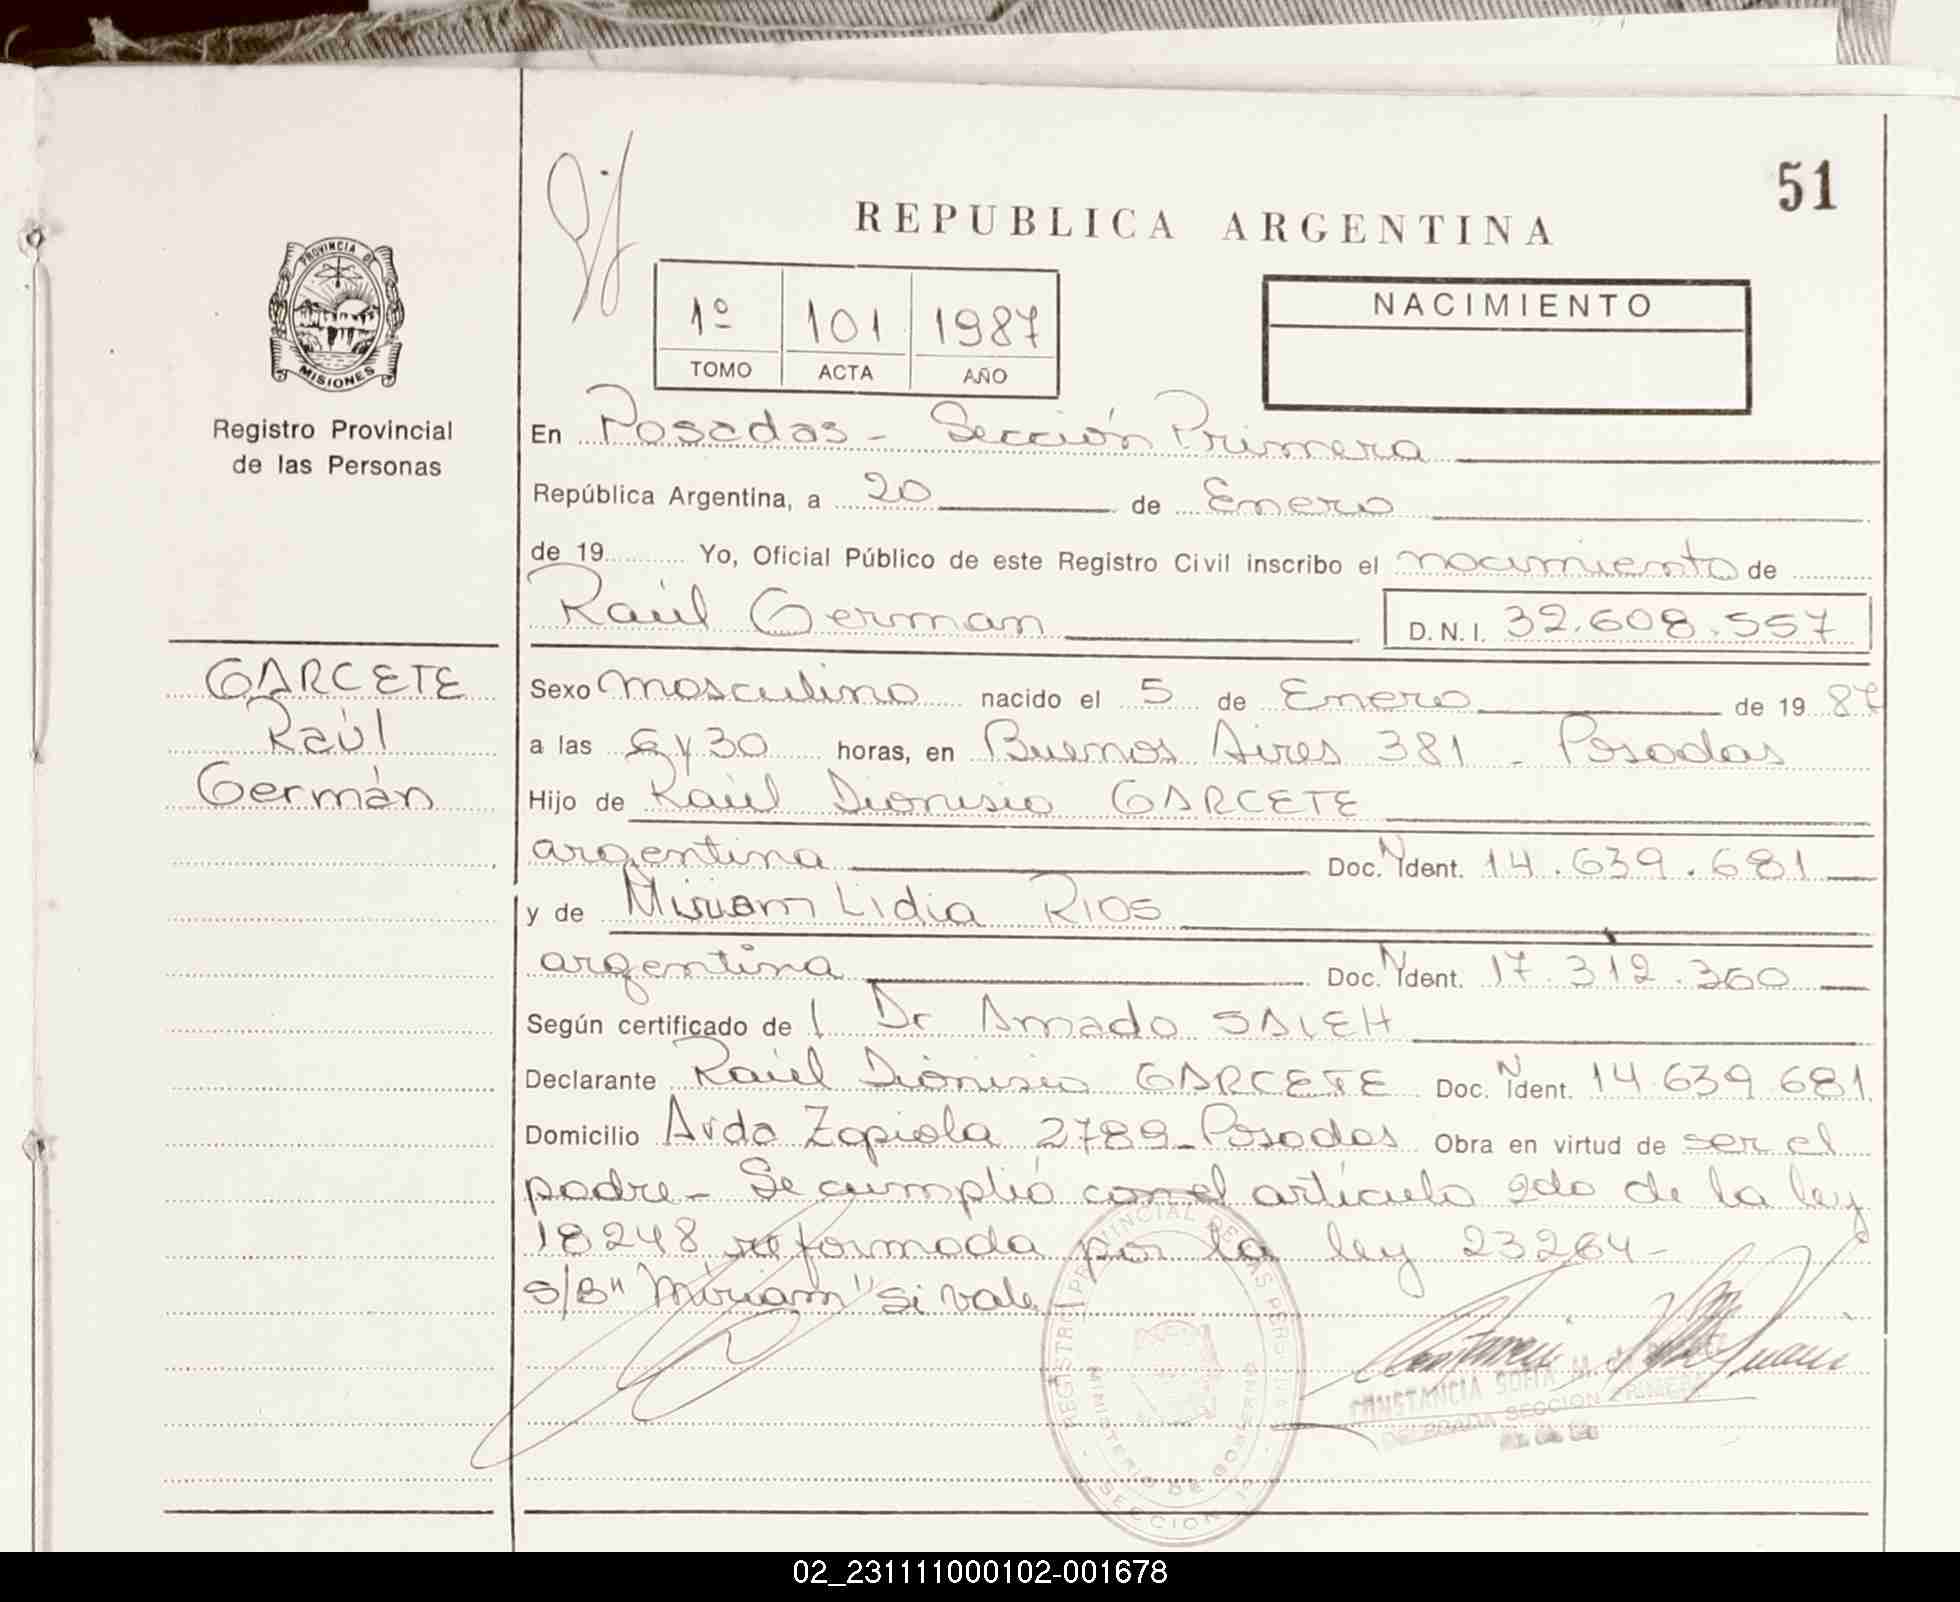 51
REPUBLICA ARGENTINA
PROVINCIA DE
MISIONES
Registro Provincial
de las Personas
1º 101 1987
TOMO ACTA AÑO
NACIMIENTO
En Posadas - Sección Primera
República Argentina, a 20 de Enero
de 19 Yo, Oficial Público de este Registro Civil inscribo el nacimiento de
Raúl German D.N.I. 32.608.557
GARCETE
Raúl
Germán
Sexo masculino nacido el 5 de Enero de 19 87
a las 6 y 30 horas, en Buenos Aires 381 - Posadas
Hijo de Raúl Dionisio GARCETE
argentina Doc. N Ident. 14.639.681
y de Miriam Lidia RIOS
argentina Doc. N Ident. 17.312.360
Según certificado de l Dr Amado SALEH
Declarante Raúl Dionisio GARCETE Doc. N Ident. 14.639.681
Domicilio Avda Zapiola 2789 - Posadas Obra en virtud de ser el
padre - Se cumplió con el artículo 2do de la ley
18248 reformada por la ley 23264 -
S/B "Miriam" si vale -
REGISTRO PROVINCIAL DE LAS PERSONAS
MINISTERIO DE GOBIERNO
SECCION 1a
CONSTANCIA SOFIA M. de
DELEGADA SECCION PRIMERA
02_231111000102-001678